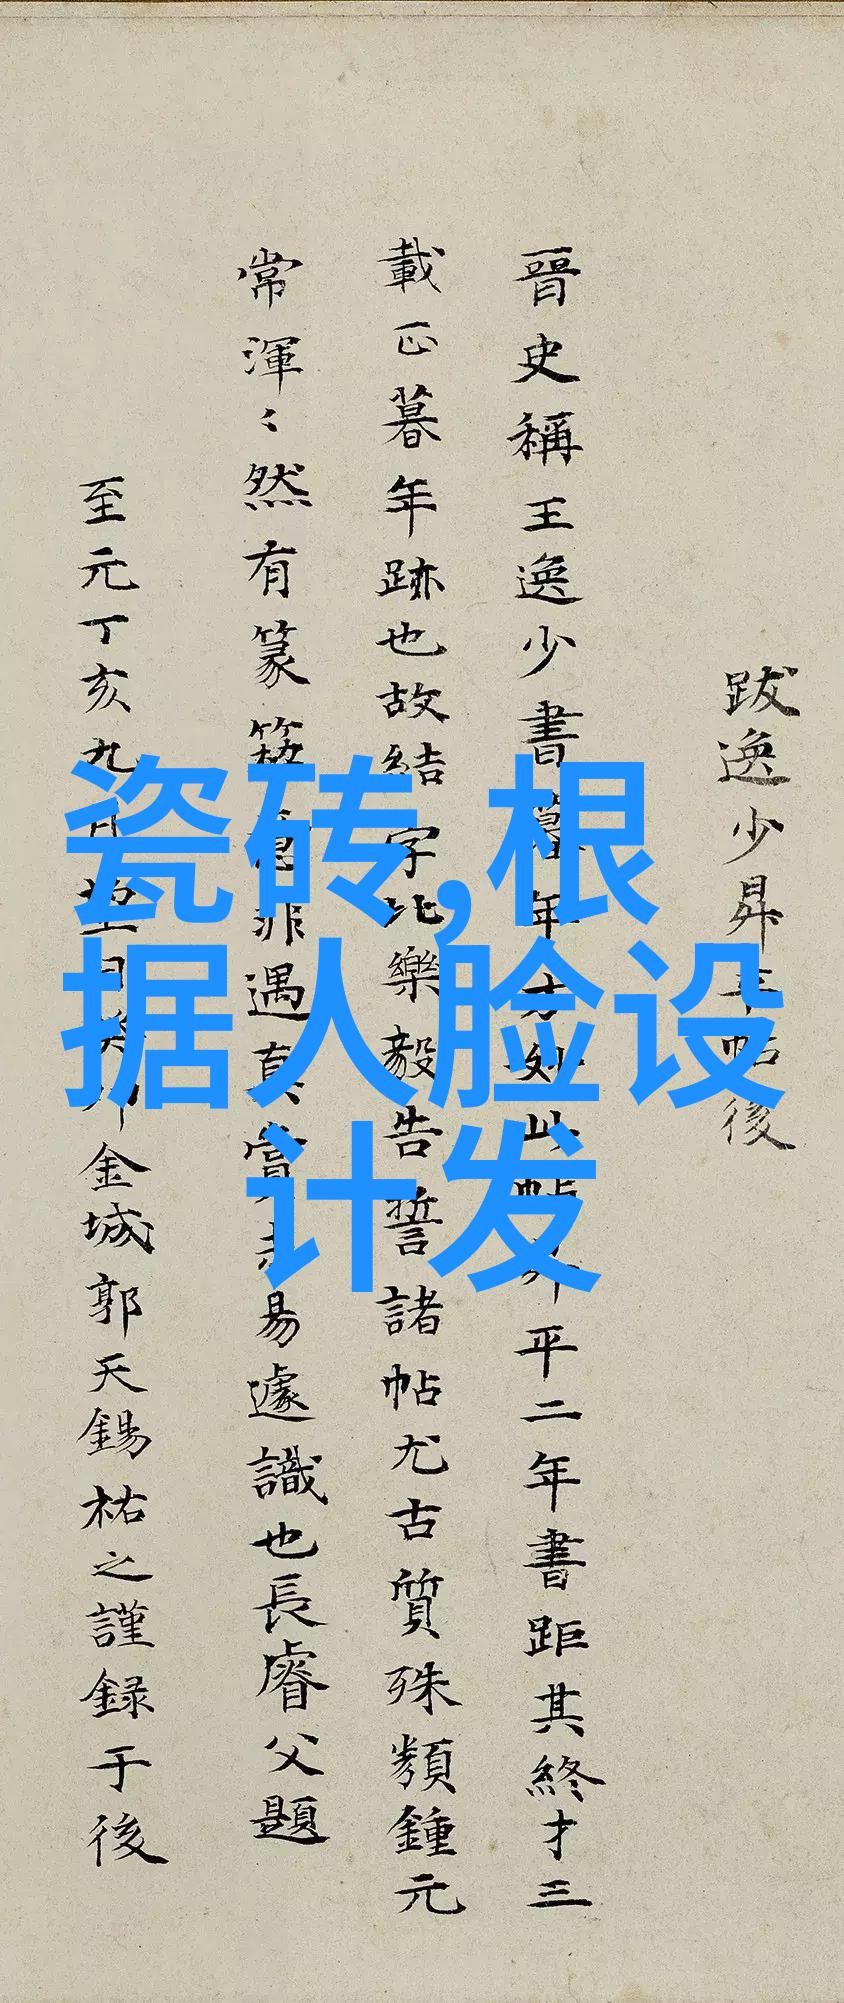 跋逸少昇平帖後
晉史稱王逸少書暮年方妙此帖升平二年書距其終才三
載正暮年跡也故結字比樂毅告誓諸帖尤古質殊類鍾元
常渾〻然有篆籀意非遇真賞未易遽識也長睿父題
至元丁亥九月望日 金城郭天錫祐之謹録于後
瓷砖,根
据人脸设
计发